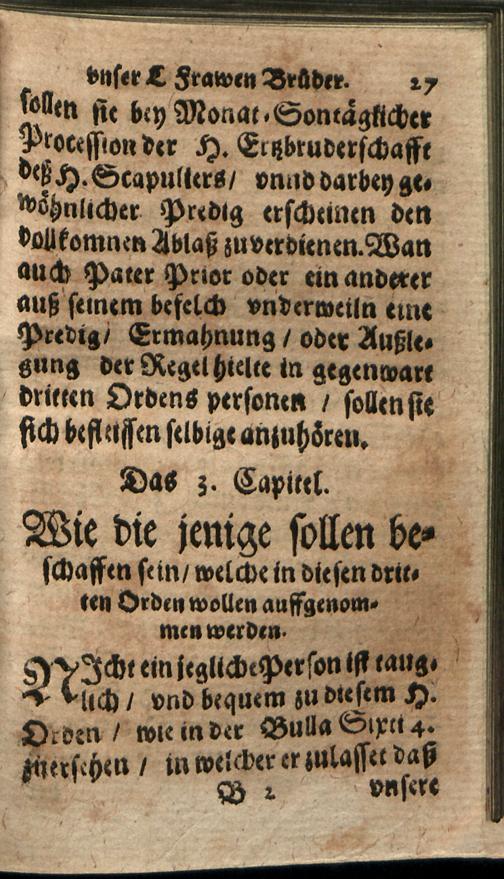 vnser L Frawen Brüder. 27
sollen sie bey Monat-Sontäglicher
Procession der H. Ertzbruderschafft
deß H. Scapuliers/ vnnd darbey ge-
wöhnlicher Predig erscheinen den
vollkomnen Ablaß zuverdienen. Wan
auch Pater Prior oder ein anderer
auß seinem befelch vnderweiln eine
Predig/ Ermahnung / oder Außle-
gung der Regel hielte in gegenwart
dritten Ordens personen / sollen sie
sich befleissen selbige anzuhören.
Das 3. Capitel.
Wie die jenige sollen be-
schaffen sein/ welche in diesen drit-
ten Orden wollen auffgenom-
men werden.
NJcht ein jegliche Person ist taug-
lich / vnd bequem zu diesem H.
Orden / wie in der Bulla Sixti 4.
zuersehen / in welcher er zulasset daß
B 2 vnsere